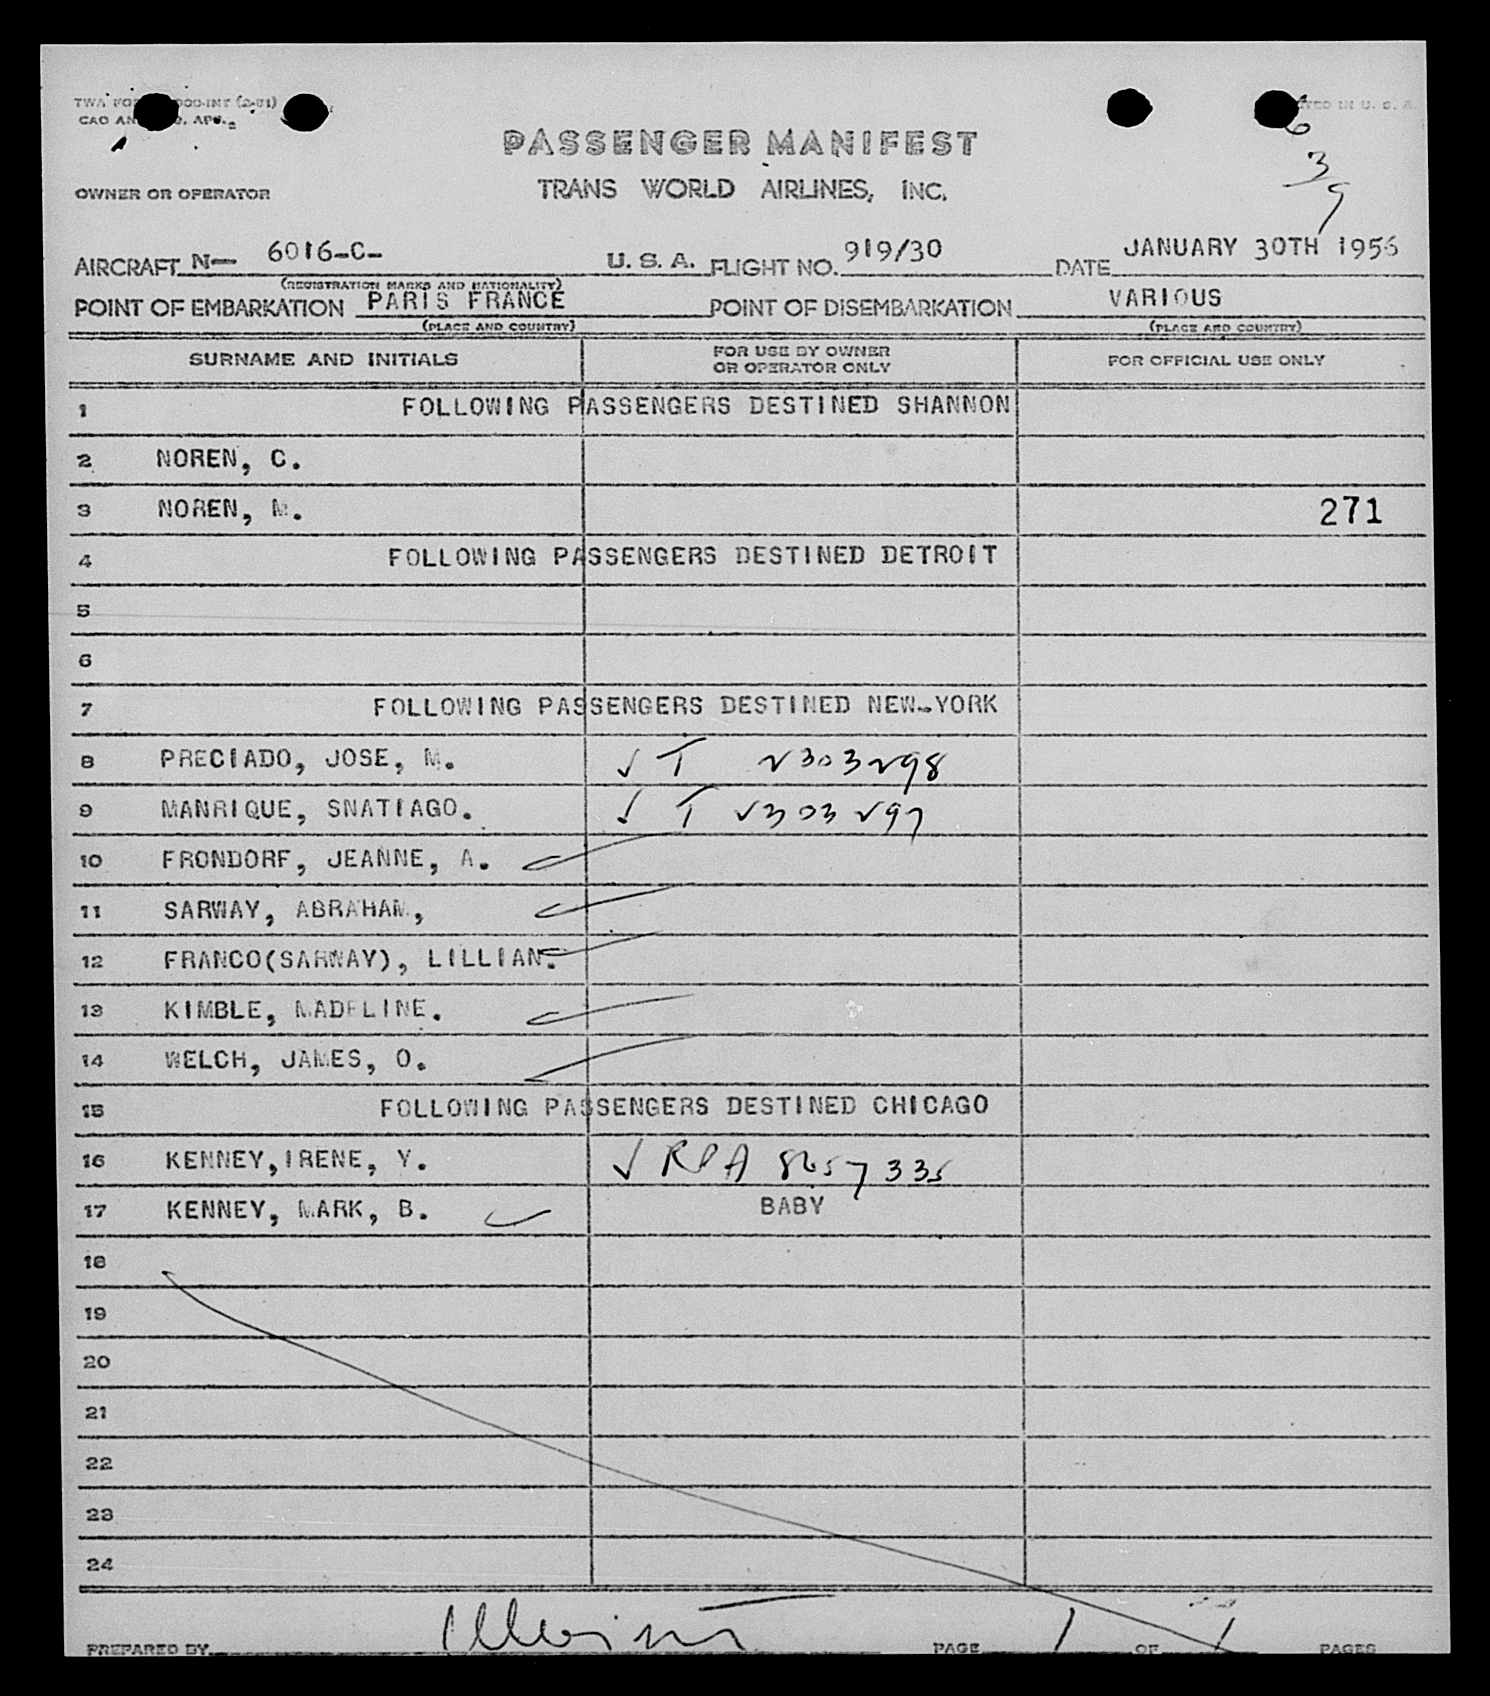 PASSENGER MANIFEST
TRANS WORLD AIRLINES, INC.
OWNER OR OPERATOR
6
3
9
AIRCRAFT N— 6016-C- U. S. A. FLIGHT NO. 919/30 DATE JANUARY 30TH 1956
(REGISTRATION MARKS AND NATIONALITY)
POINT OF EMBARKATION PARIS FRANCE POINT OF DISEMBARKATION VARIOUS
(PLACE AND COUNTRY) (PLACE AND COUNTRY)
SURNAME AND INITIALS FOR USE BY OWNER OR OPERATOR ONLY FOR OFFICIAL USE ONLY
1 FOLLOWING PASSENGERS DESTINED SHANNON
2 NOREN, C.
3 NOREN, M. 271
4 FOLLOWING PASSENGERS DESTINED DETROIT
5
6
7 FOLLOWING PASSENGERS DESTINED NEW-YORK
8 PRECIADO, JOSE, M. ✓ T V303298
9 MANRIQUE, SNATIAGO. ✓ T V303297
10 FRONDORF, JEANNE, A.
11 SARWAY, ABRAHAM,
12 FRANCO(SARWAY), LILLIAN.
13 KIMBLE, MADELINE.
14 WELCH, JAMES, O.
15 FOLLOWING PASSENGERS DESTINED CHICAGO
16 KENNEY,IRENE, Y. ✓ RPA 8657335
17 KENNEY, MARK, B. ✓ BABY
18
19
20
21
22
23
24
PREPARED BY PAGE 1 OF 1 PAGES